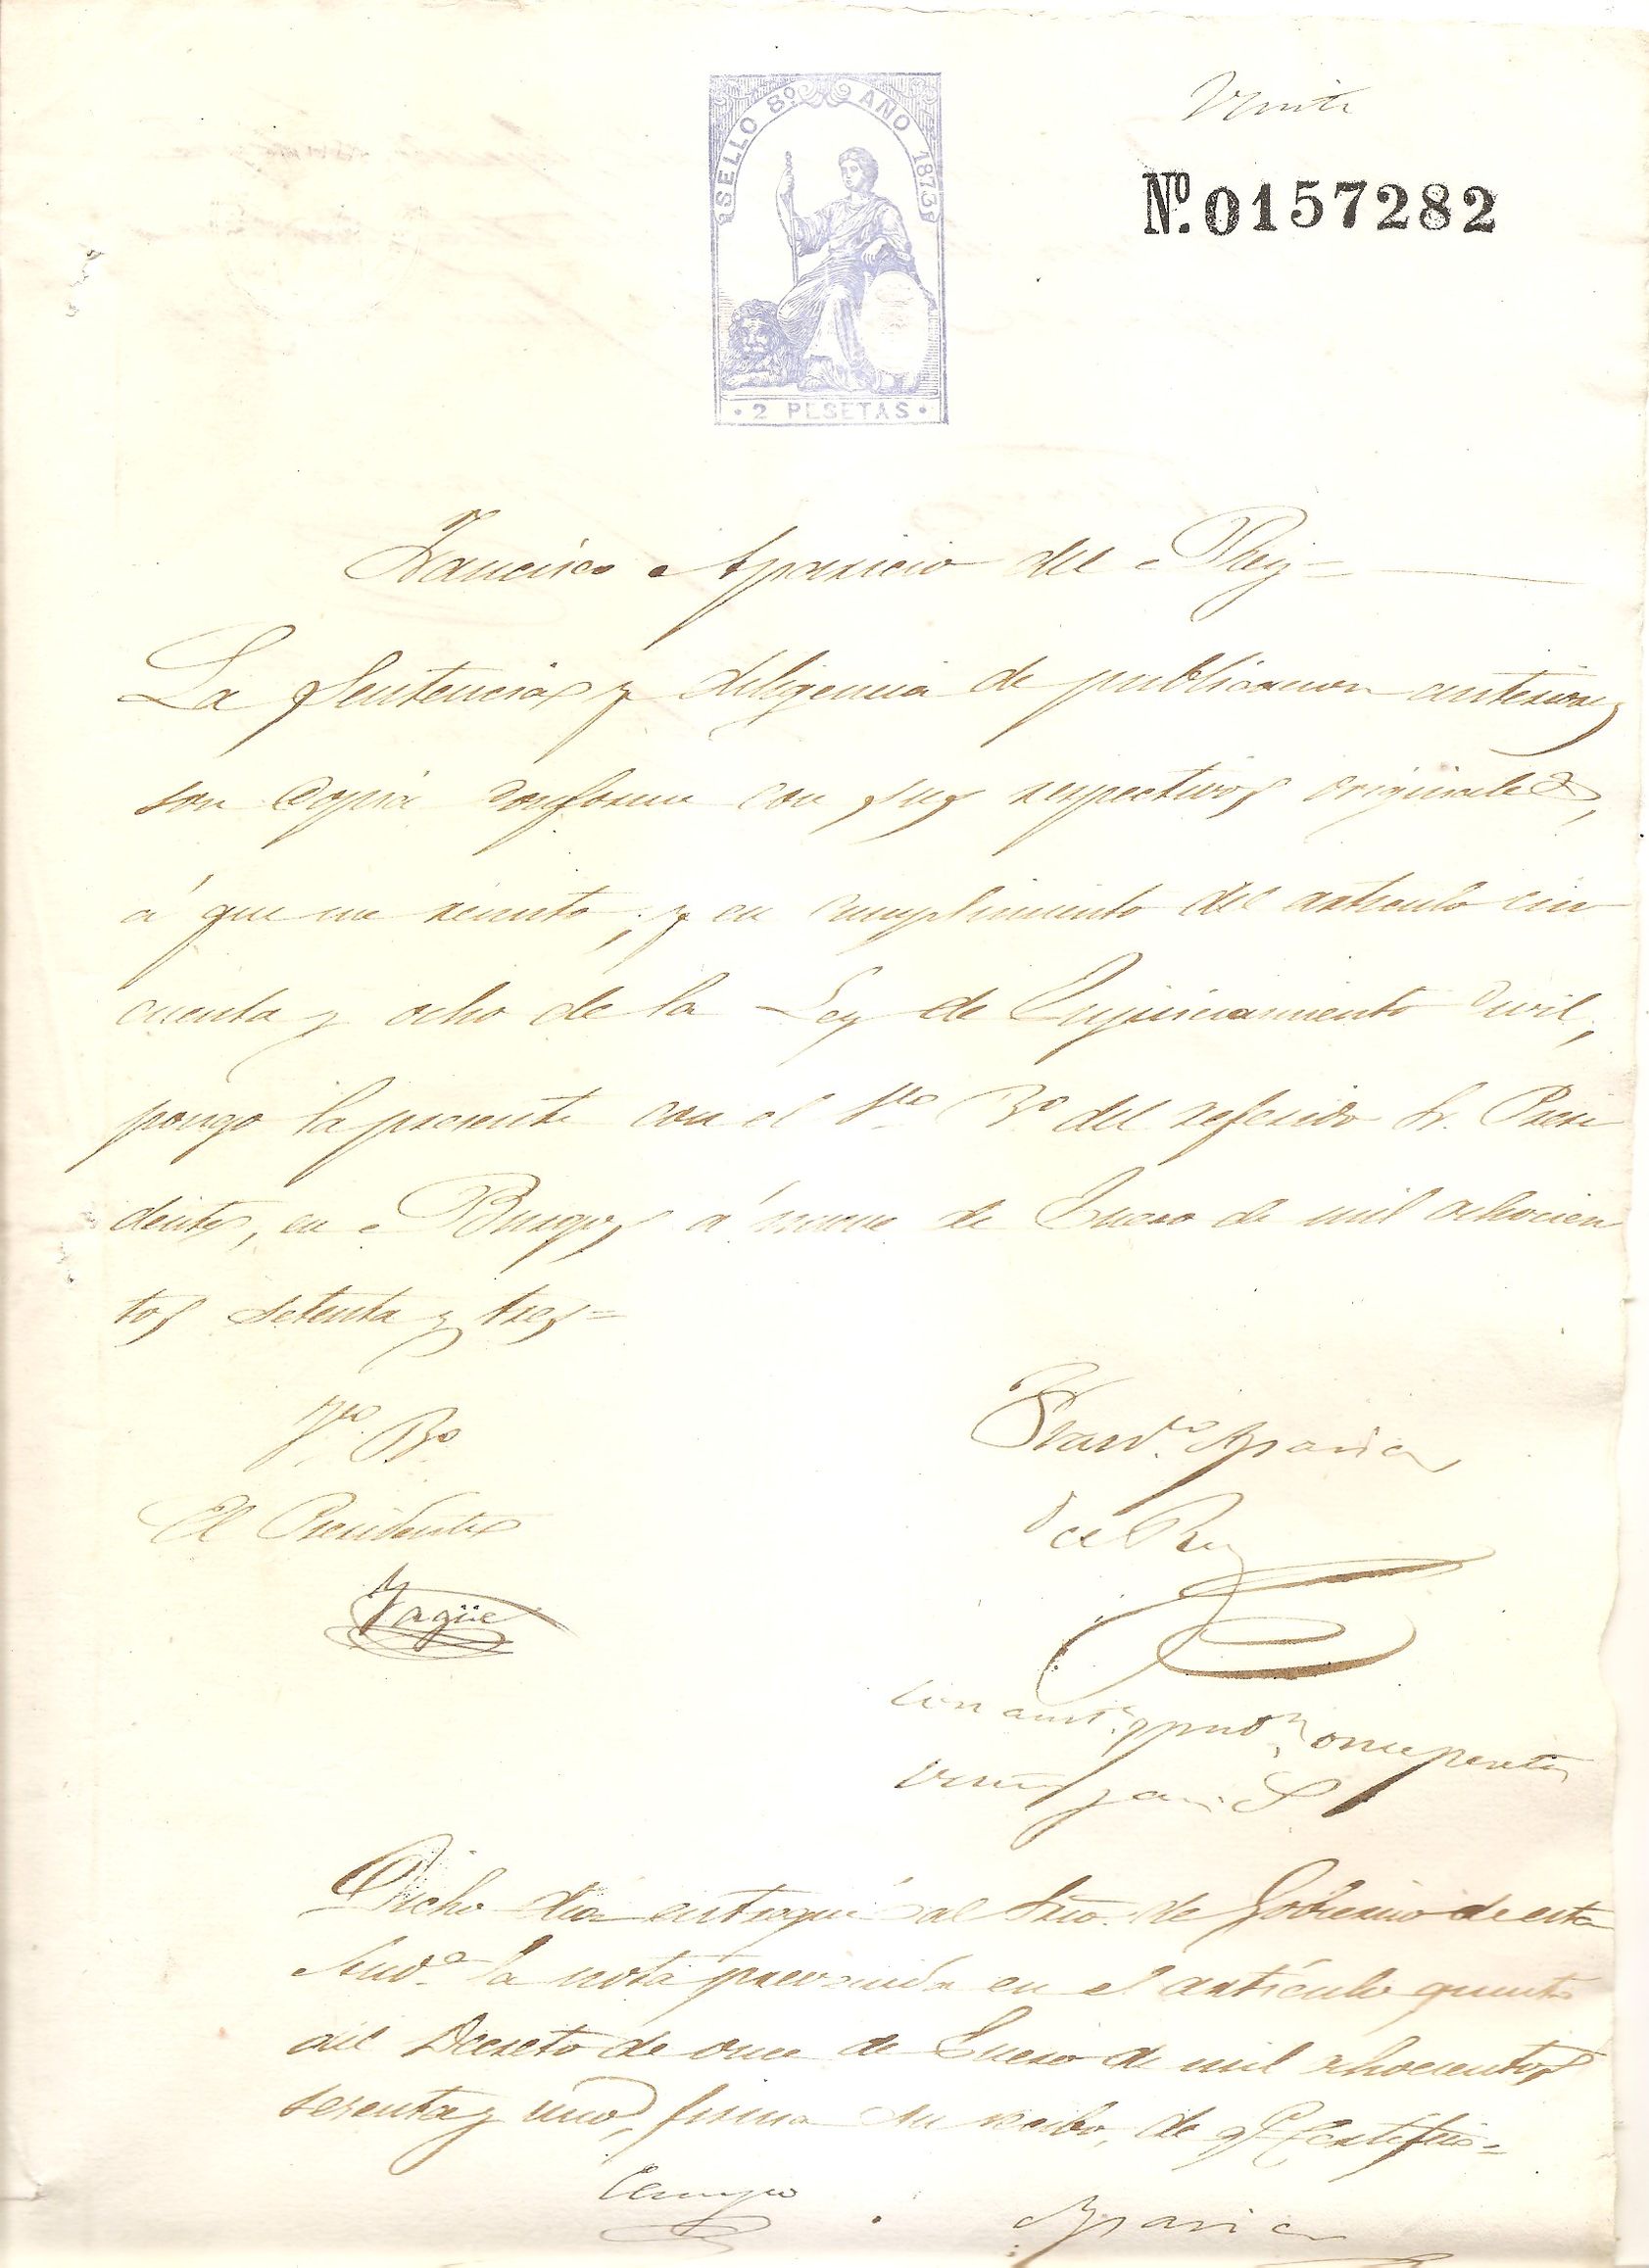 Veinte
SELLO 8º AÑO 1873
Nº. 0157282
2 PESETAS
Francisco Aparicio del Rey=
La Sentencia y diligencia de publicacion anteriores
son copia conforme con sus respectivos originales,
á que me remito; y en cumplimiento del articulo cin
cuenta y ocho de la Ley de Enjuiciamiento Civil,
pongo la presente con el Vto. Bº. del referido Sr. Presi
dente, en Burgos á nueve de Enero de mil ochocien
tos setenta y tres=
Vto. Bº
El Presidente
Yagüe
Franco. Aparicio
del Rey
once pesetas
Dicho dia entregué al Srio. de Gobierno de esta
Auda. la nota prevenida en el artículo quinto
del Decreto de once de Enero de mil ochocientos
sesenta y uno, firma su recibo, de q. Certifico=
Aparicio